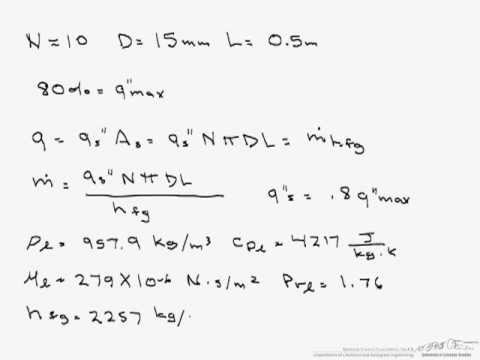 N = 10 D = 15mm L = 0.5m
80% = q"max
q = qs" As = qs" N π D L = ṁ hfg
ṁ = qs" N π D L / hfg
q"s = .8 q"max
ρl = 957.9 kg/m³ cpl = 4217 J/kg·K
μl = 279 X10-6 N·s/m² Prl = 1.76
hfg = 2257 kg/